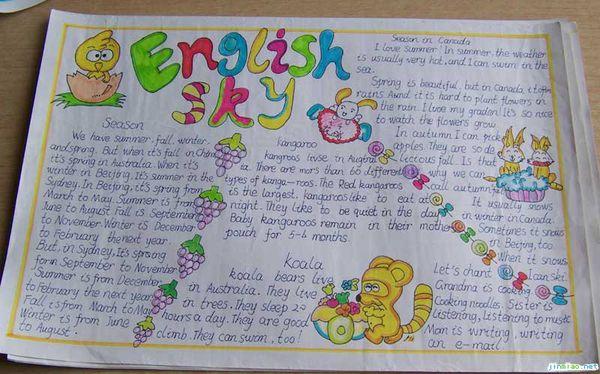 English
Sky
Season
We have summer, fall, winter,
and spring. But when it's fall in China
it's spring in Australia. When it's
winter in Beijing. It's summer in the
Sydney. In Beijing, it's spring from
March to May. Summer is from
June to August. Fall is September
to November. Winter is December
to February the next year.
But, in Sydney, It's spring
from September to November
Summer is from December
to February the next year.
Fall is from March to May
Winter is from June
to August.
kangaroo
kangroos livse in
a. There are more than 60 different
types of kanga-roos. The Red kangaroo
is the largest. kangaroos like to eat at
night. They like to be quiet in the day
Baby kangaroos remain in their mother
pouch for 5-6 months.
Koala
koala bears live
in Australia. They live
in trees. They sleep 22
hours a day. They are good
climb. They can swan, too!
Season in Canada
I love summer! In summer, the weather
is usually very hot, and I can swim in the
sea.
Spring is beautiful, but in Canada, it often
rains. And it is hard to plant flowers in
the rain. I love my graden! It's so nice
to watch the flowers grow.
In autumn I can pick
apples. They are so de
licious fall. Is that
why we can
call autumn
It usually snows
in winter in Canada.
Sometimes it snows
in Beijing, too.
When it snows.
I can ski.
Let's chant
Grandma is cooking,
Cooking noodles. Sister is
listening, Listening to music
Mom is writing, writing
an e-mail!
jinmiao.net